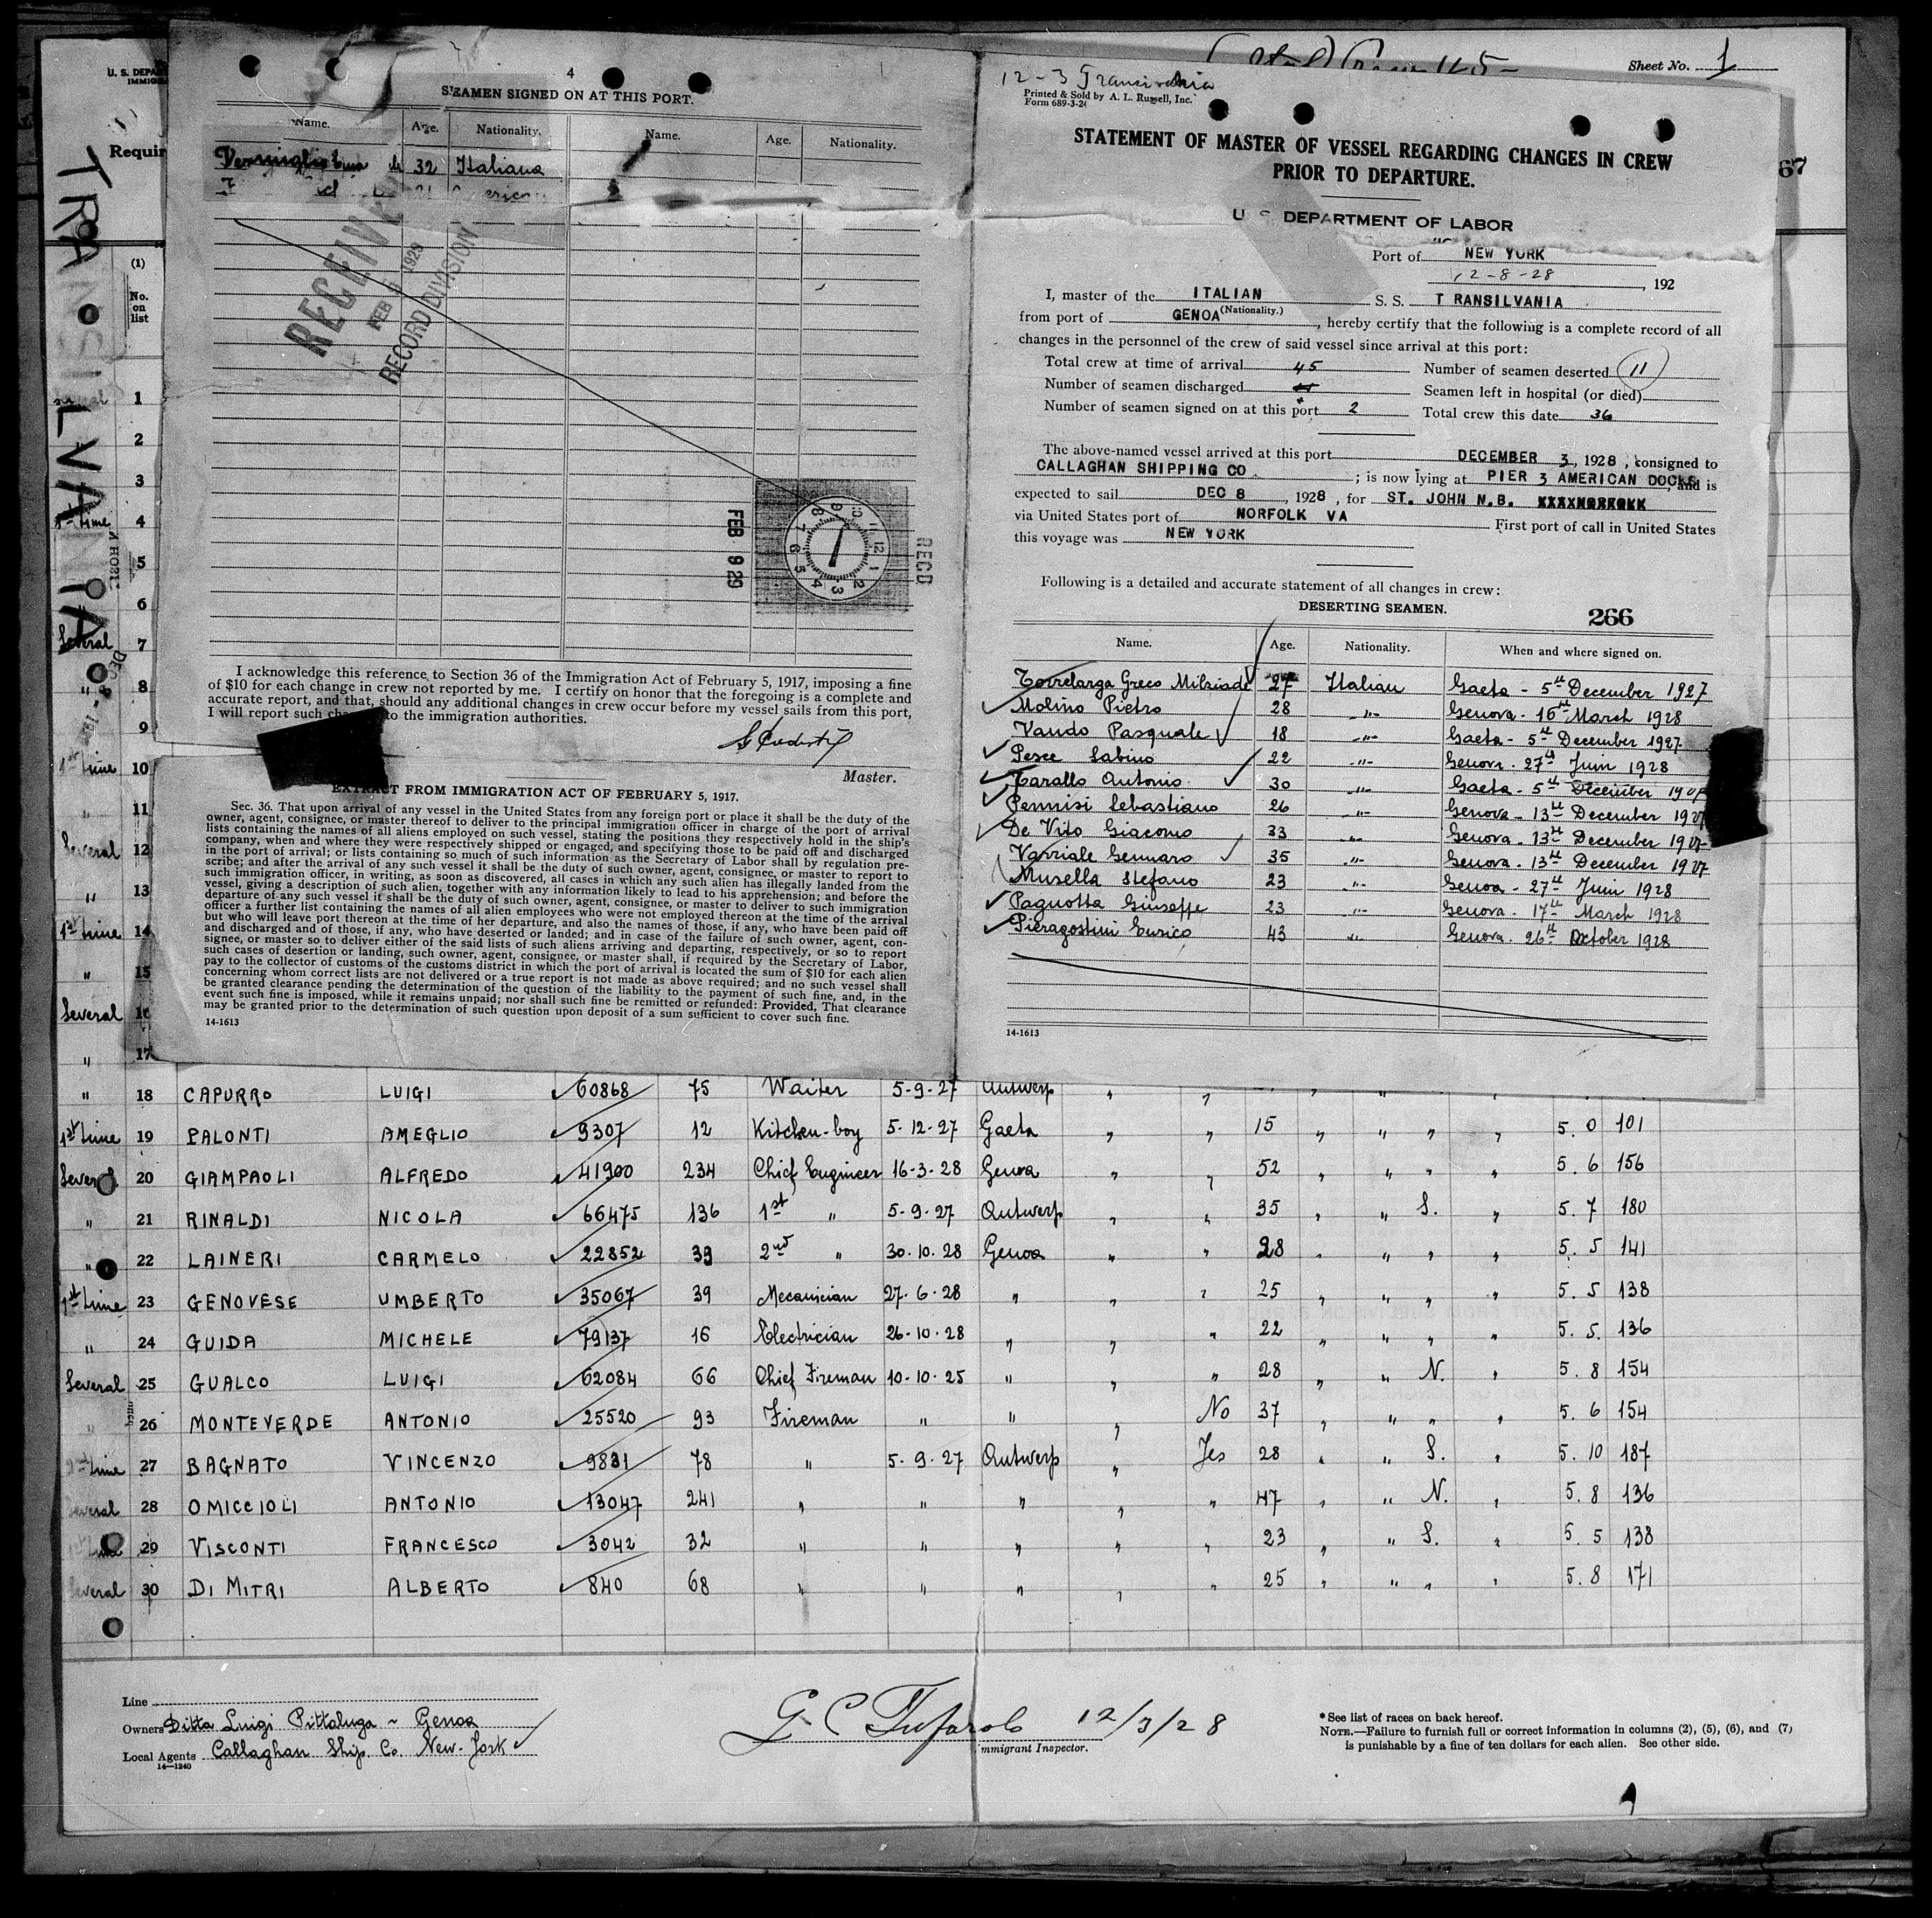 TRANSILVANIA
U. S. DEPA
IMMIG
Requir
(1)
No.
on
list
Sheet No. 1
67
4
SEAMEN SIGNED ON AT THIS PORT.
Name. Age. Nationality. Name. Age. Nationality.
32 Italiana
RECEIVE
FEB 1929
RECORD DIVISION
FEB 9 29
RECD
I acknowledge this reference to Section 36 of the Immigration Act of February 5, 1917, imposing a fine
of $10 for each change in crew not reported by me. I certify on honor that the foregoing is a complete and
accurate report, and that, should any additional changes in crew occur before my vessel sails from this port,
I will report such to the immigration authorities.
Master.
EXTRACT FROM IMMIGRATION ACT OF FEBRUARY 5, 1917.
Sec. 36. That upon arrival of any vessel in the United States from any foreign port or place it shall be the duty of the
owner, agent, consignee, or master thereof to deliver to the principal immigration officer in charge of the port of arrival
lists containing the names of all aliens employed on such vessel, stating the positions they respectively hold in the ship's
company, when and where they were respectively shipped or engaged, and specifying those to be paid off and discharged
in the port of arrival; or lists containing so much of such information as the Secretary of Labor shall by regulation pre-
scribe; and after the arrival of any such vessel it shall be the duty of such owner, agent, consignee, or master to report to
such immigration officer, in writing, as soon as discovered, all cases in which any such alien has illegally landed from the
vessel, giving a description of such alien, together with any information likely to lead to his apprehension; and before the
departure of any such vessel it shall be the duty of such owner, agent, consignee, or master to deliver to such immigration
officer a further list containing the names of all alien employees who were not employed thereon at the time of the arrival
but who will leave port thereon at the time of her departure, and also the names of those, if any, who have been paid off
and discharged and of those, if any, who have deserted or landed; and in case of the failure of such owner, agent, con-
signee, or master so to deliver either of the said lists of such aliens arriving and departing, respectively, or so to report
such cases of desertion or landing, such owner, agent, consignee, or master shall, if required by the Secretary of Labor,
pay to the collector of customs of the customs district in which the port of arrival is located the sum of $10 for each alien
concerning whom correct lists are not delivered or a true report is not made as above required; and no such vessel shall
be granted clearance pending the determination of the question of the liability to the payment of such fine, and, in the
event such fine is imposed, while it remains unpaid; nor shall such fine be remitted or refunded: Provided, That clearance
may be granted prior to the determination of such question upon deposit of a sum sufficient to cover such fine.
14-1613
12-3 Transilvania
Printed & Sold by A. L. Russell, Inc.
Form 689-3-2
STATEMENT OF MASTER OF VESSEL REGARDING CHANGES IN CREW
PRIOR TO DEPARTURE.
U. S. DEPARTMENT OF LABOR
Port of NEW YORK
12-8-28, 192
I, master of the ITALIAN S. S. T RANSILVANIA
(Nationality.)
from port of GENOA, hereby certify that the following is a complete record of all
changes in the personnel of the crew of said vessel since arrival at this port:
Total crew at time of arrival 45 Number of seamen deserted 11
Number of seamen discharged Seamen left in hospital (or died)
Number of seamen signed on at this port 2 Total crew this date 36
The above-named vessel arrived at this port DECEMBER 3, 1928, consigned to
CALLAGHAN SHIPPING CO ; is now lying at PIER 3 AMERICAN DOCKS, and is
expected to sail DEC 8, 1928, for ST. JOHN N.B. XXXXNORFOLK
via United States port of NORFOLK VA First port of call in United States
this voyage was NEW YORK
Following is a detailed and accurate statement of all changes in crew:
DESERTING SEAMEN. 266
Name. Age. Nationality. When and where signed on.
Torrelarga Greco Milziade 27 Italian Gaeta - 5th December 1927
Molino Pietro 28 -"- Genova - 16th March 1928
Vaudo Pasquale 18 -"- Gaeta - 5th December 1927
Pesce Sabino 22 -"- Genova - 27th Juin 1928
Tarallo Antonio 30 -"- Gaeta - 5th December 1927
Pennisi Sebastiano 26 -"- Genova - 13th December 1927
De Vito Giacomo 33 -"- Genova - 13th December 1927
Varriale Gennaro 35 -"- Genova - 13th December 1927
Musella Stefano 23 -"- Genoa - 27th Juin 1928
Pagnotta Giuseppe 23 -"- Genova - 17th March 1928
Pieragostini Eurico 43 -"- Genova - 26th October 1928
14-1613
1
2
3
1st time 4
5
6
Several 7
" 8
9
1st time 10
" 11
Several 12
" 13
1st time 14
" 15
Several 16
" 17
" 18 CAPURRO LUIGI 60868 75 Waiter 5-9-27 Antwerp
1st time 19 PALONTI AMEGLIO 9307 12 Kitchen-boy 5-12-27 Gaeta " " 15 " " " " 5. 0 101
Several 20 GIAMPAOLI ALFREDO 41900 234 Chief Engineer 16-3-28 Genoa " " 52 " " " " 5. 6 156
" 21 RINALDI NICOLA 66475 136 1st " 5-9-27 Antwerp " " 35 " " S. " 5. 7 180
" 22 LAINERI CARMELO 22852 39 2nd " 30-10-28 Genoa " " 28 " " " " 5. 5 141
1st time 23 GENOVESE UMBERTO 35067 39 Mecanician 27-6-28 " " " 25 " " " " 5. 5 138
" 24 GUIDA MICHELE 79137 16 Electrician 26-10-28 " " " 22 " " " " 5. 5. 136
Several 25 GUALCO LUIGI 62084 66 Chief Fireman 10-10-25 " " " 28 " " N. " 5. 8 154
" 26 MONTEVERDE ANTONIO 25520 93 Fireman " " " No 37 " " " " 5. 6 154
time 27 BAGNATO VINCENZO 9831 78 " 5-9-27 Antwerp " Yes 28 " " S. " 5. 10 187
Several 28 OMICCIOLI ANTONIO 13047 241 " " " " " 47 " " N. " 5. 8 136
29 VISCONTI FRANCESCO 3042 32 " " " " " 23 " " S. " 5. 5 138
Several 30 DI MITRI ALBERTO 840 68 " " " " " 25 " " " " 5. 8 171
Line
Owners Ditta Luigi Pittaluga ~ Genoa
Local Agents Callaghan Ship. Co. New-York
14—1240
G C Tufarolo 12/3/28
Immigrant Inspector.
* See list of races on back hereof.
NOTE.—Failure to furnish full or correct information in columns (2), (5), (6), and (7)
is punishable by a fine of ten dollars for each alien. See other side.